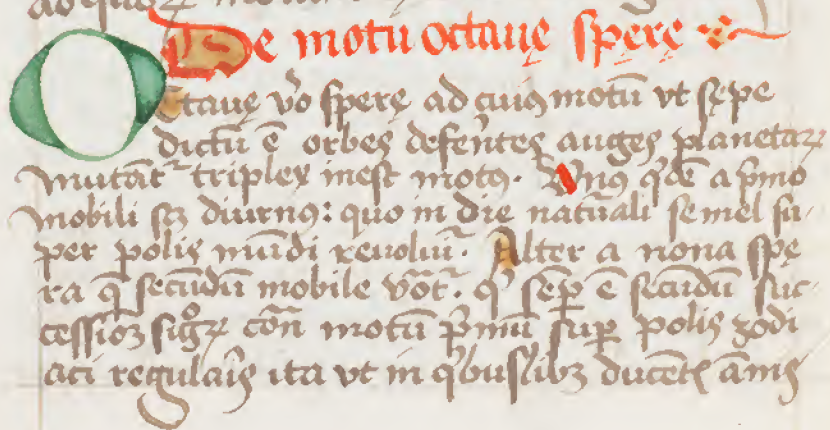 De motu octauę spęrę
Octauę v̄o spęrę ad cuiꝯ motū vt sępe
dictū ē orbes defeꝛ̄ntes auges planetaꝝ
mutāt᷑ triplex inest motꝯ. Vnꝯ qͥdē a pͥmo
mobili scꝫ diurnꝯ: quo in die natuꝛ̄ali semel su
per polis mūdi reuoluit᷑. Alter a nona spę
ra q̄ secūdū mobile vōt᷑. qͥ sēꝑ ē secūdū suc
cessioꝫ sigͦꝝ cōn motū pͥmū suꝑ polis zodi
aci regulaꝛ̄is ita vt in qͥbusꝉibꝫ ducēt̄ ānis